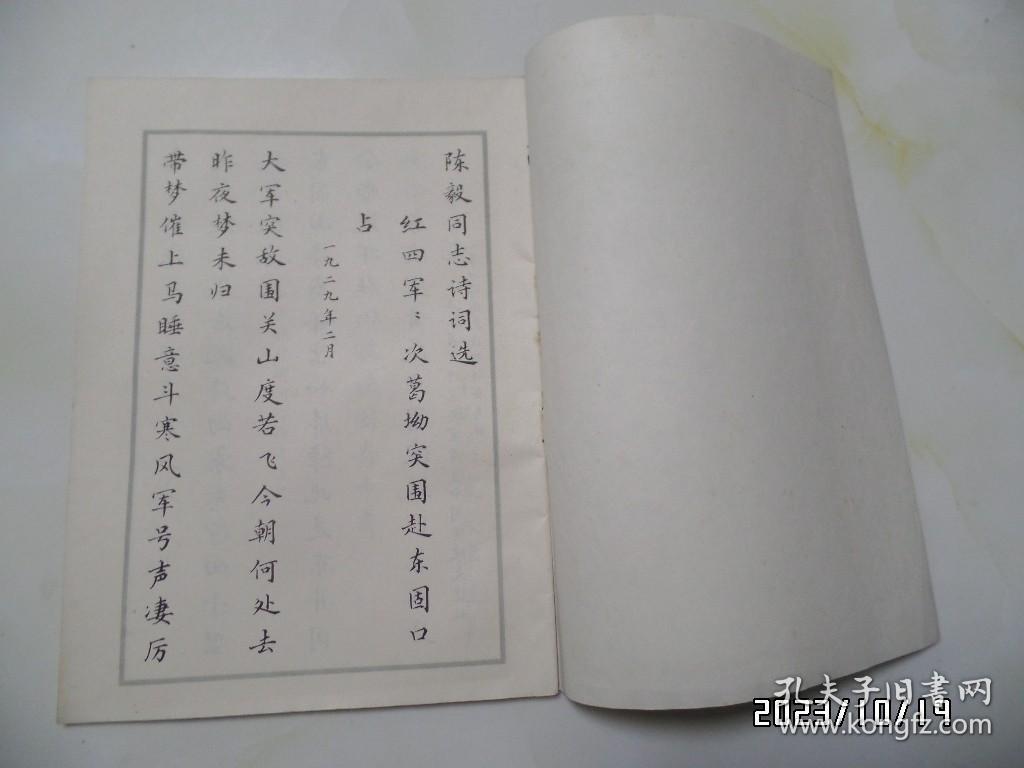 陈毅同志诗词选
红四军〻次葛坳突围赴东固口
占
一九二九年二月
大军突敌围关山度若飞今朝何处去
昨夜梦未归
带梦催上马睡意斗寒风军号声凄厉
孔夫子旧书网
2023/10/19
www.kongfz.com